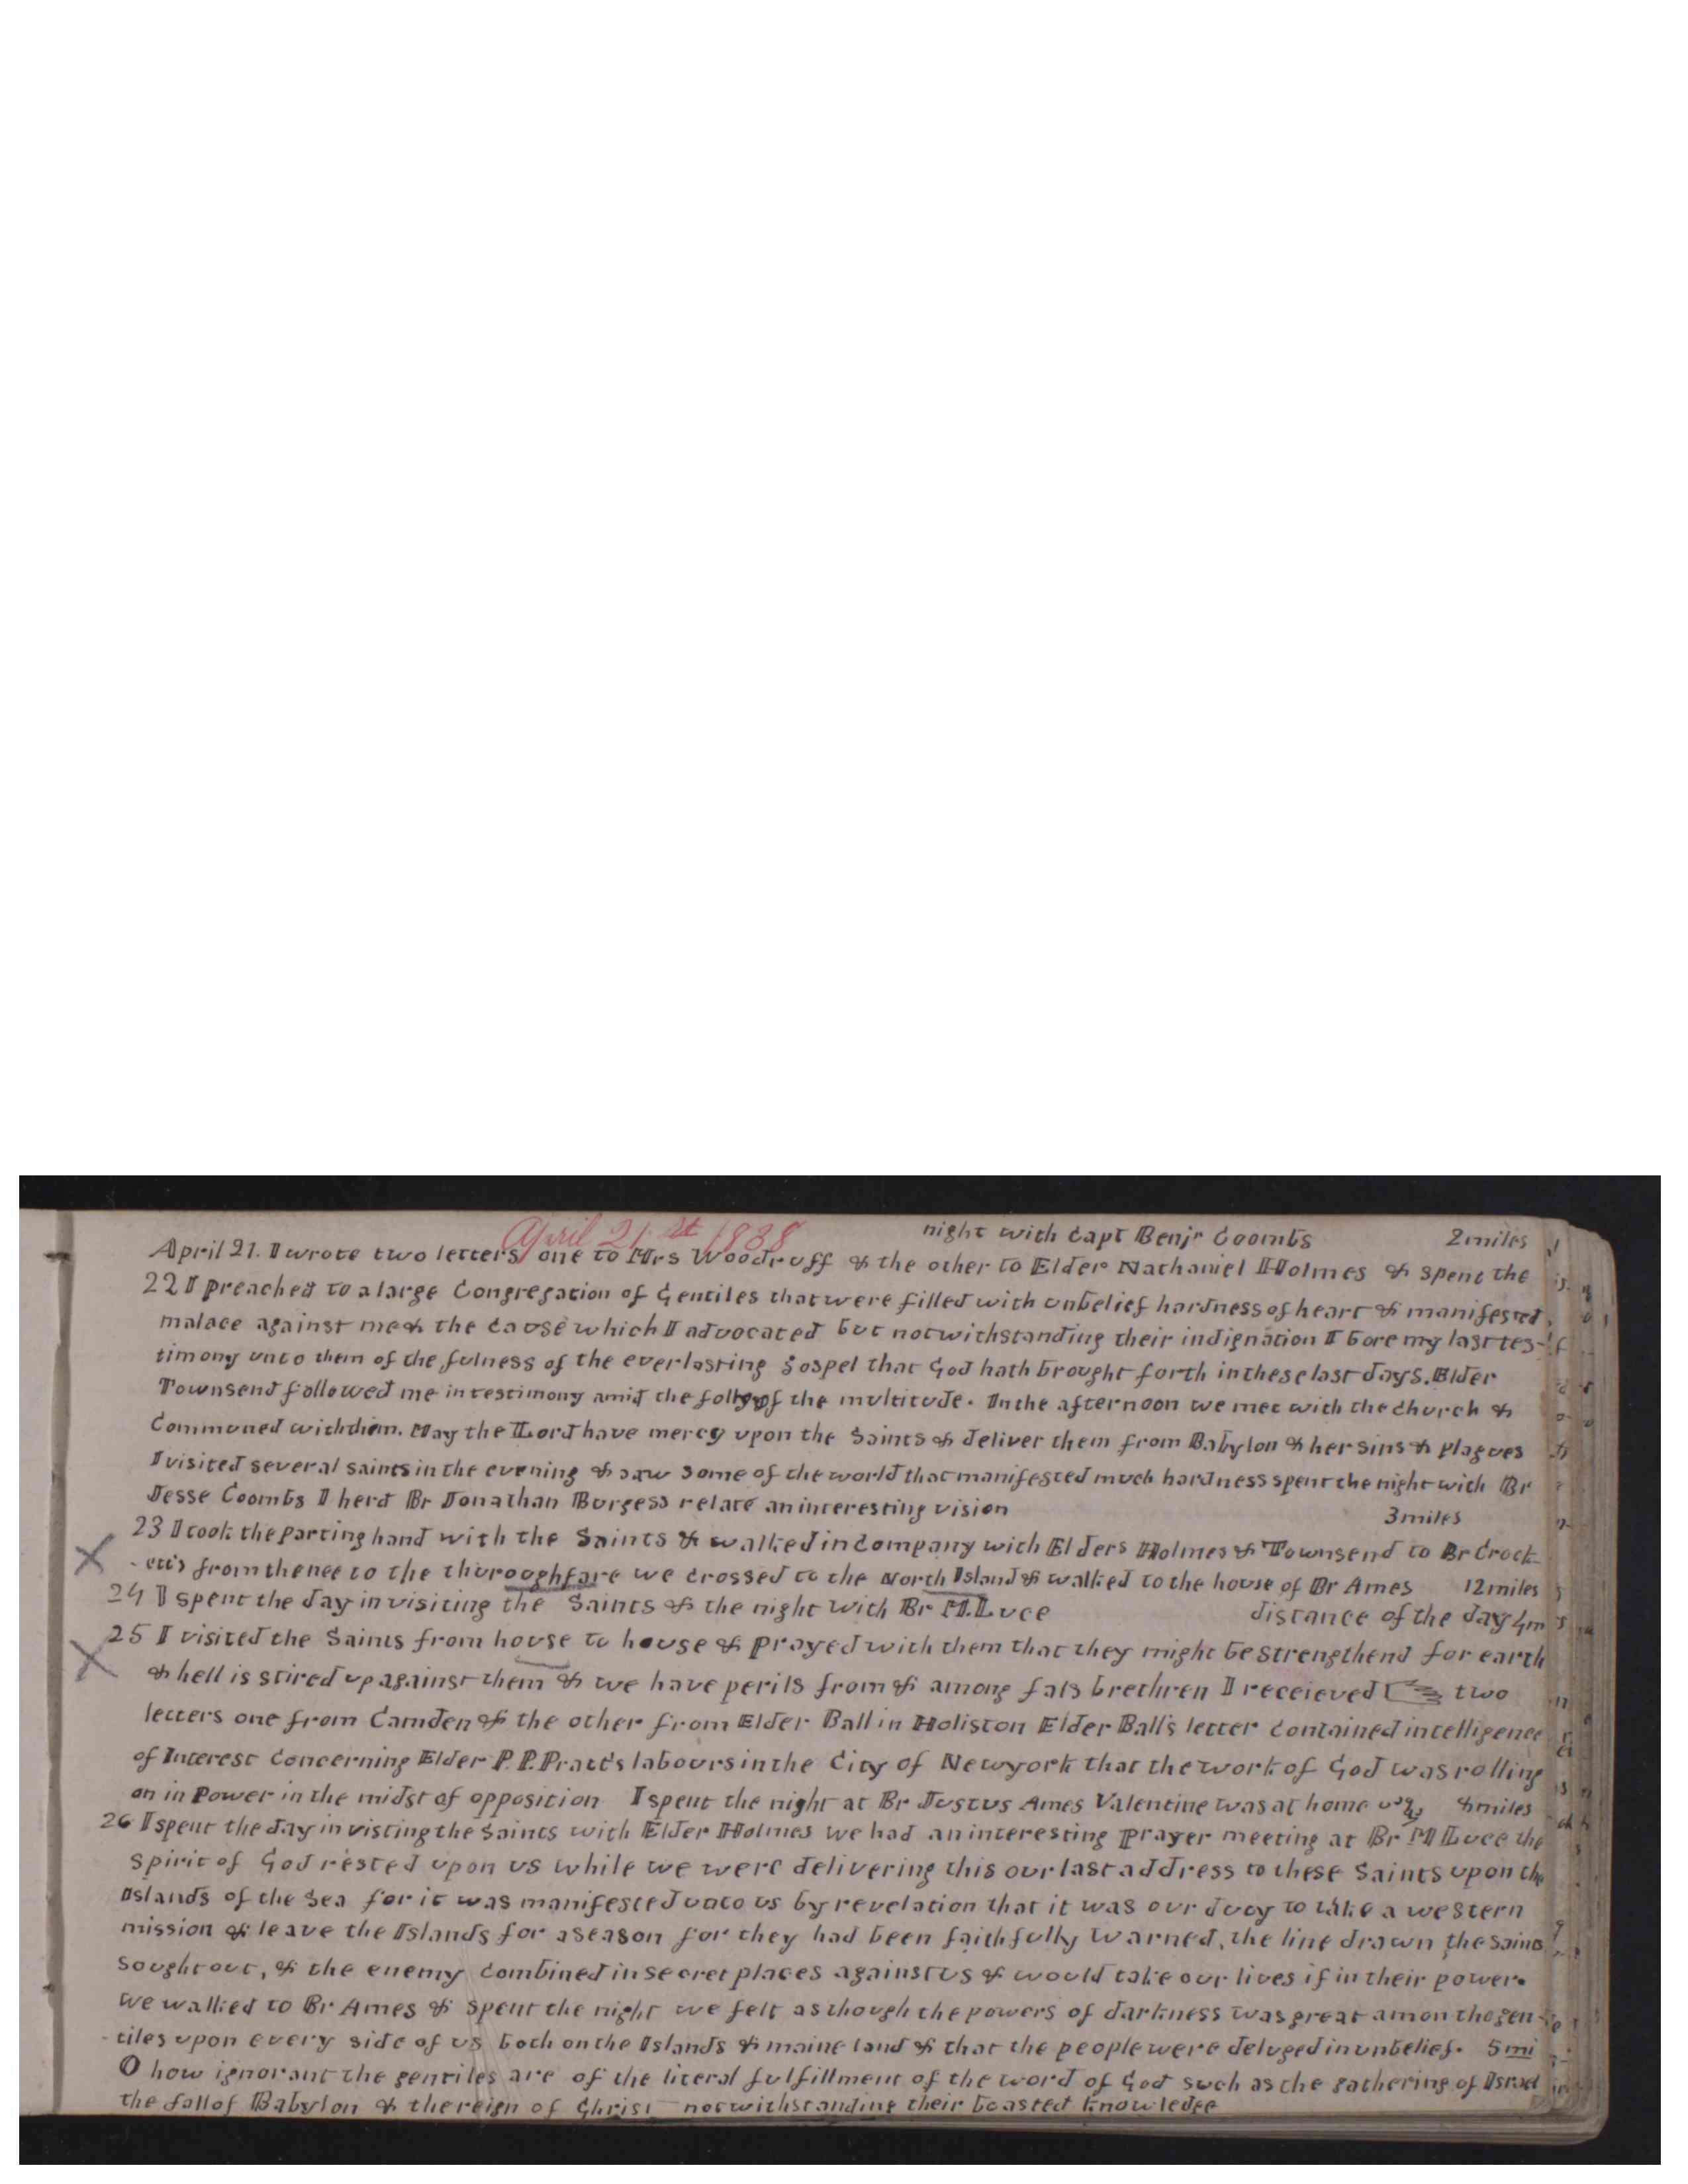 April 21st 1838
night with Capt Benjr Coombs 2 miles
April 21. I wrote two letters, one to Mrs Woodruff & the other to Elder Nathaniel Holmes & spent the
22 I preached to a large Congregation of Gentiles that were filled with unbelief hardness of heart & manifested
malace against me & the cause which I advocated but notwithstanding their indignation I bore my last tes-
timony unto them of the fulness of the everlasting gospel that God hath brought forth in these last days. Elder
Townsend followed me in testimony amid the folly of the multitude. In the afternoon we met with the church &
Communed with them. May the Lord have mercy upon the Saints & deliver them from Babylon & her sins & plagues
I visited several saints in the evening & saw some of the world that manifested much hardness spent the night with Br
Jesse Coombs I herd Br Jonathan Burgess relate an interesting vision 3 miles
23 I took the parting hand with the Saints & walked in company with Elders Holmes & Townsend to Br Crock-
-etts from thence to the thoroughfare we crossed to the North Island & walked to the house of Br Ames 12 miles
24 I spent the day in visiting the Saints & the night with Br M. Luce distance of the day 4m
25 I visited the Saints from house to house & prayed with them that they might be strengthend for earth
& hell is stired up against them & we have perils from & among fals brethren I receieved two
letters one from Camden & the other from Elder Ball in Holiston Elder Ball's letter contained intelligence
of Interest concerning Elder P. P. Pratt's labours in the City of Newyork that the work of God was rolling
on in Power in the midst of opposition I spent the night at Br Justus Ames Valentine was at home 8 miles
26 I spent the day in visting the Saints with Elder Holmes we had an interesting prayer meeting at Br M Luce the
spirit of God rested upon us while we were delivering this our last address to these Saints upon the
Islands of the Sea for it was manifested unto us by revelation that it was our duty to take a western
mission & leave the Islands for a season for they had been faithfully warned, the line drawn the saints
sought out, & the enemy combined in secret places against us & would take our lives if in their power.
We walked to Br Ames & spent the night we felt as though the powers of darkness was great amon the gen-
-tiles upon every side of us both on the Islands & maine land & that the people were deluged in unbelief. 5 mi
O how ignorant the gentiles are of the literal fulfillment of the word of God such as the gathering of Israel
the fall of Babylon & the reign of Christ notwithstanding their boasted knowledge